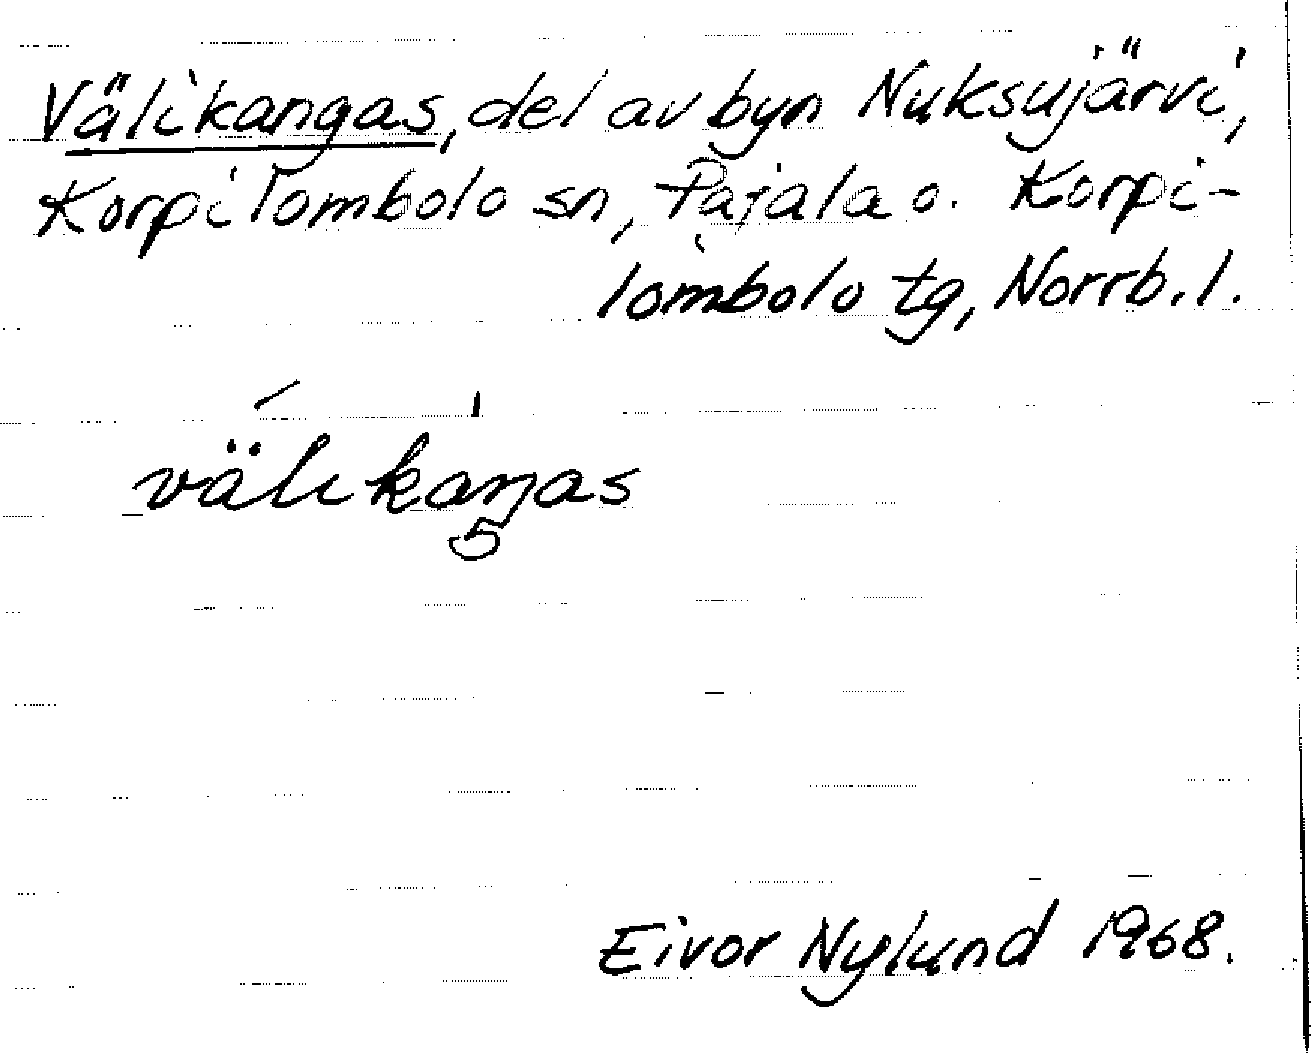 Välikangas, del av byn Nuksujärvi,
Korpilombolo sn, Pajala o. Korpi-
lombolo tg, Norrb. l.
välikaŋas
Eivor Nylund 1968.